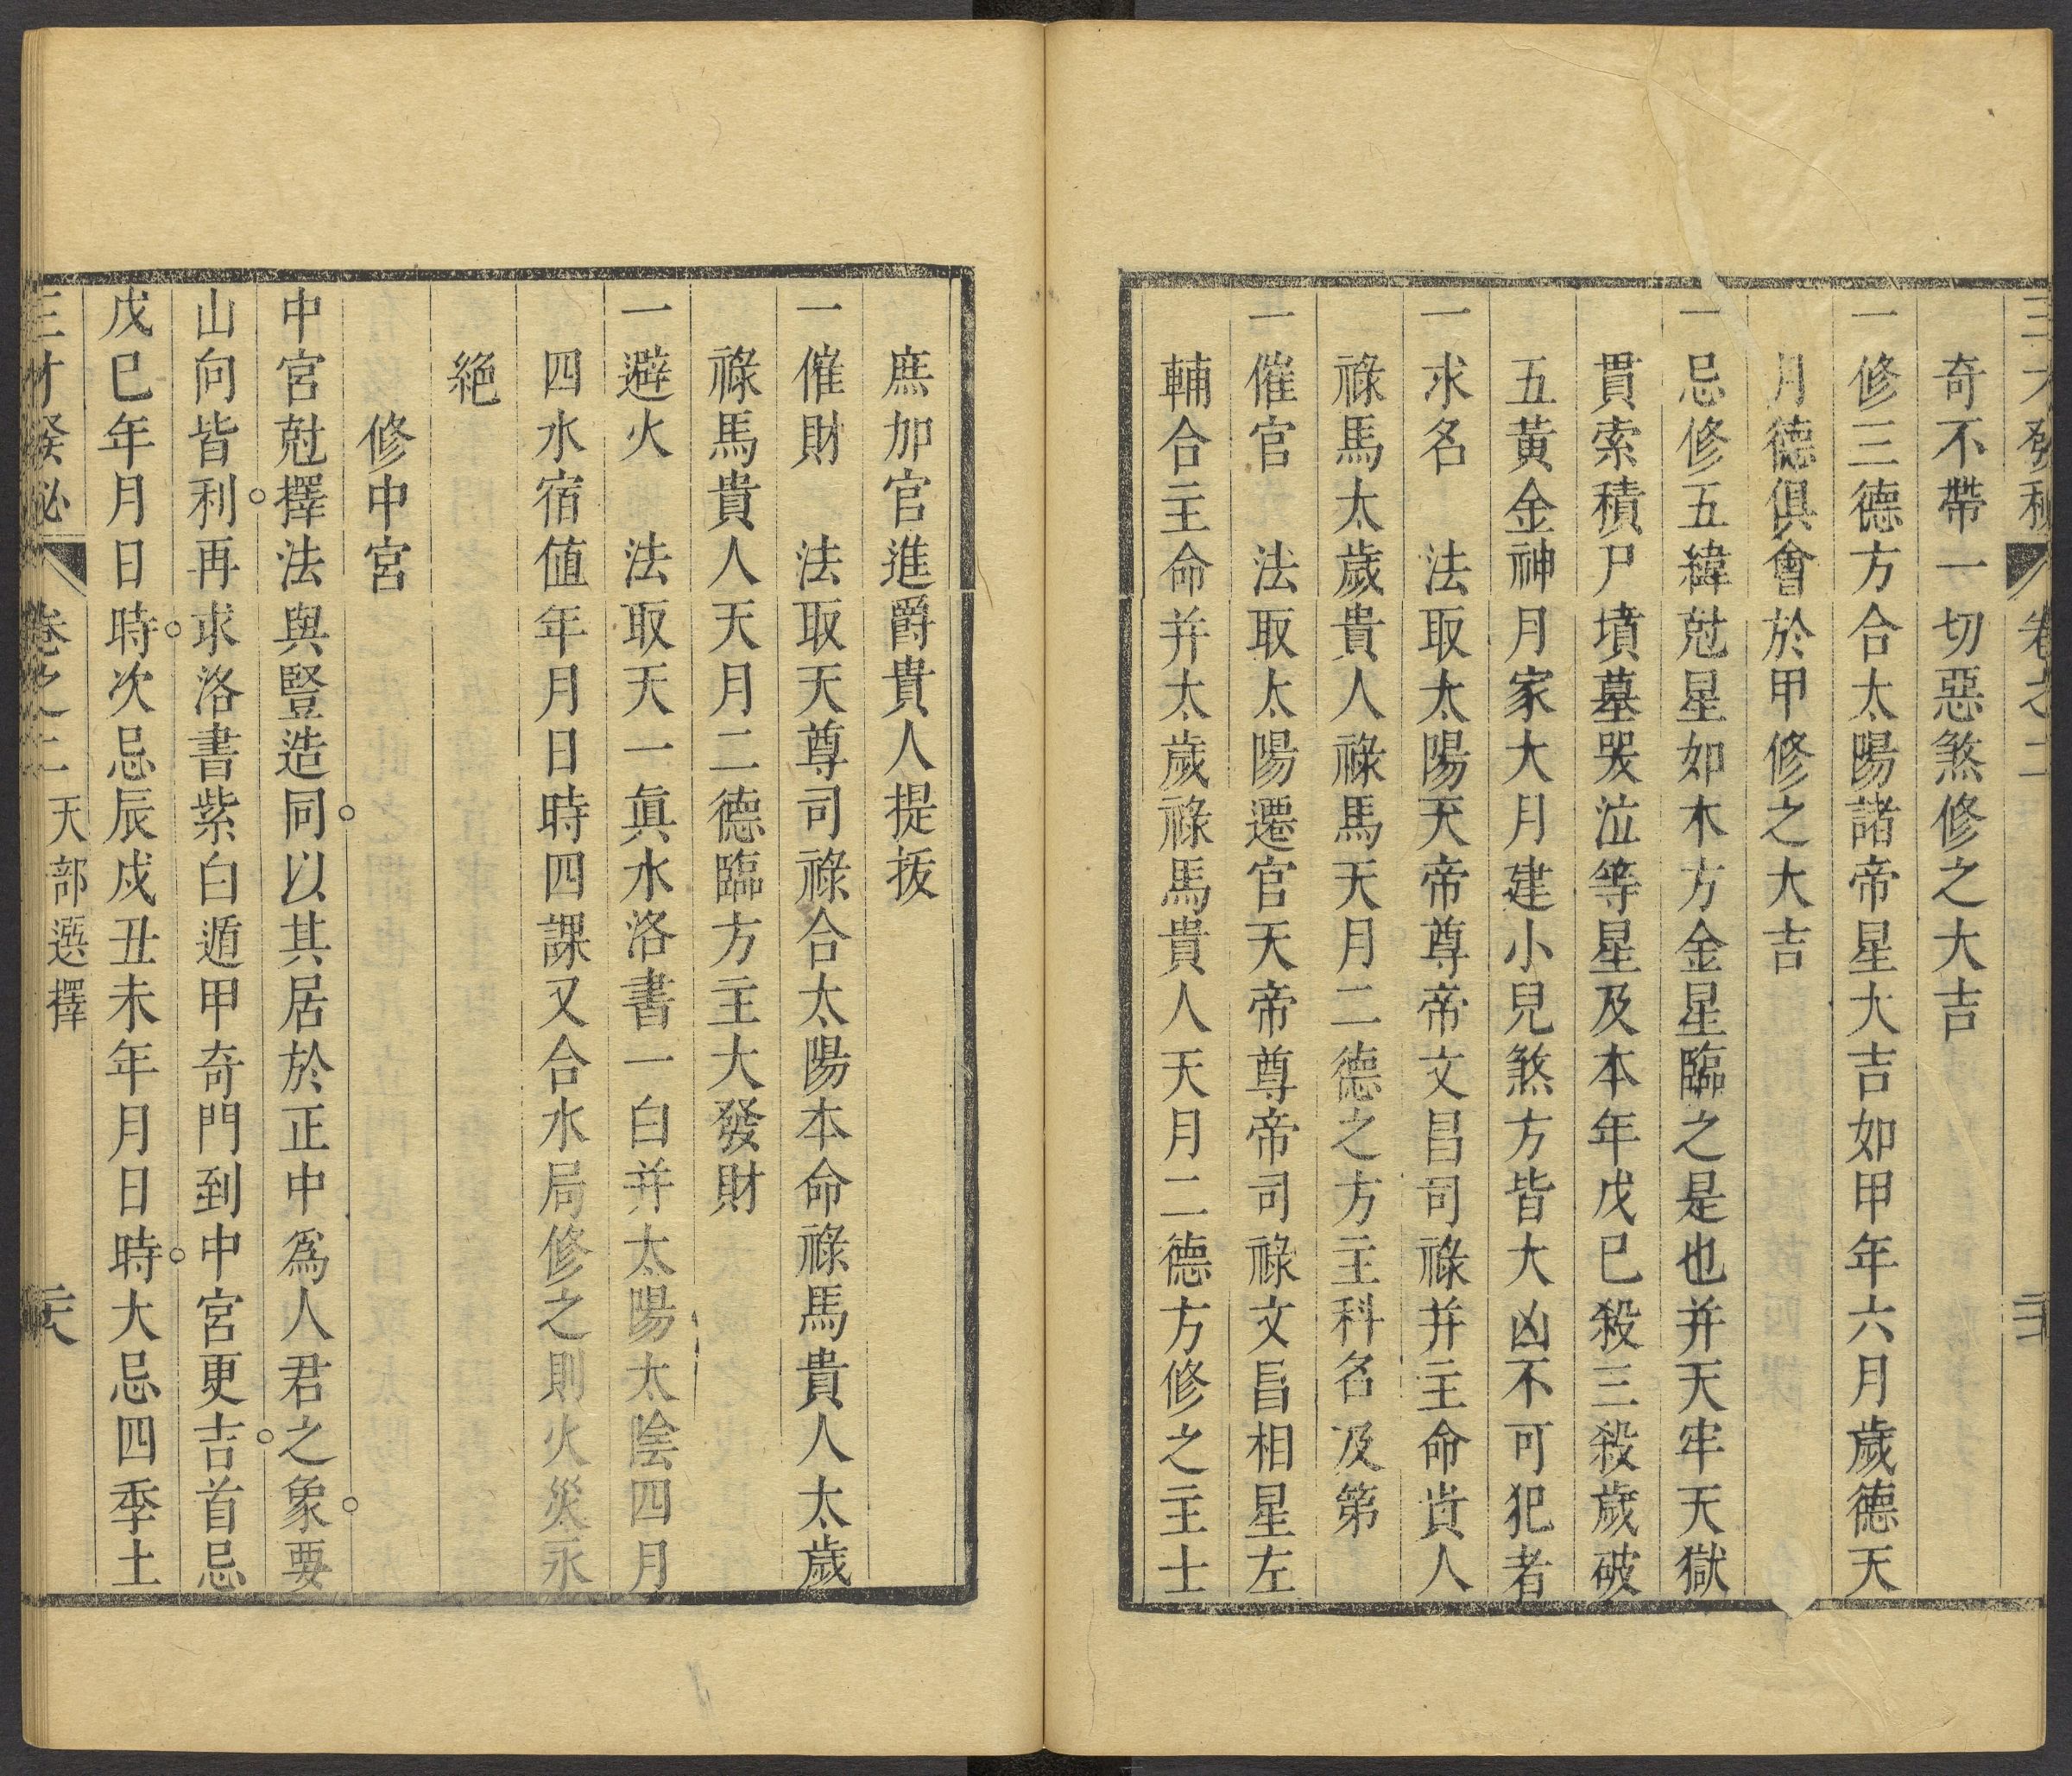 奇不帶一切惡煞修之大吉
一修三德方合太陽諸帝星大吉如甲年六月歲德天
月德俱會於甲修之大吉
一忌修五緯尅星如木方金星臨之是也并天牢天獄
貫索積尸墳墓哭泣等星及本年戊巳殺三殺歲破
五黃金神月家大月建小兒煞方皆大凶不可犯者
一求名　法取太陽天帝尊帝文昌司祿并主命貴人
祿馬太歲貴人祿馬天月二德之方主科名及第
一催官　法取太陽遷官天帝尊帝司祿文昌相星左
輔合主命并太歲祿馬貴人天月二德方修之主士
庶加官進爵貴人提拔
一催財　法取天尊司祿合太陽本命祿馬貴人太歲
祿馬貴人天月二德臨方主大發財
一避火　法取天一眞水洛書一白并太陽太陰四月
四水宿值年月日時四課又合水局修之則火災永
絕
修中宮
中宮尅擇法與豎造同。以其居於正中爲人君之象。要
山向皆利。再求洛書紫白遁甲奇門到中宮更吉。首忌
戊巳年月日時。次忌辰戌丑未年月日時。大忌四季土
三才發秘　卷之二　天部選擇　二十八